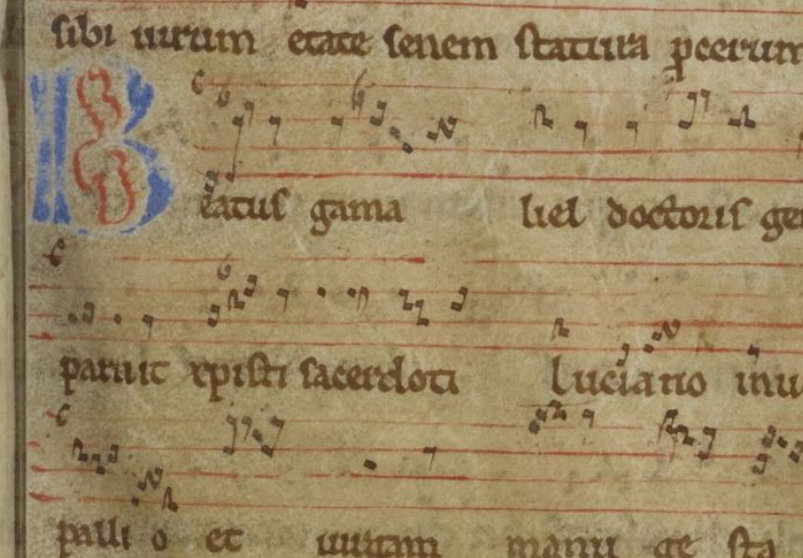 sibi uirum etate senem statura pcerum
Beatus gama liel doctoris ge
paruit xpisti sacerdoti Luciano inu
palli o et uirgam manu ge sta